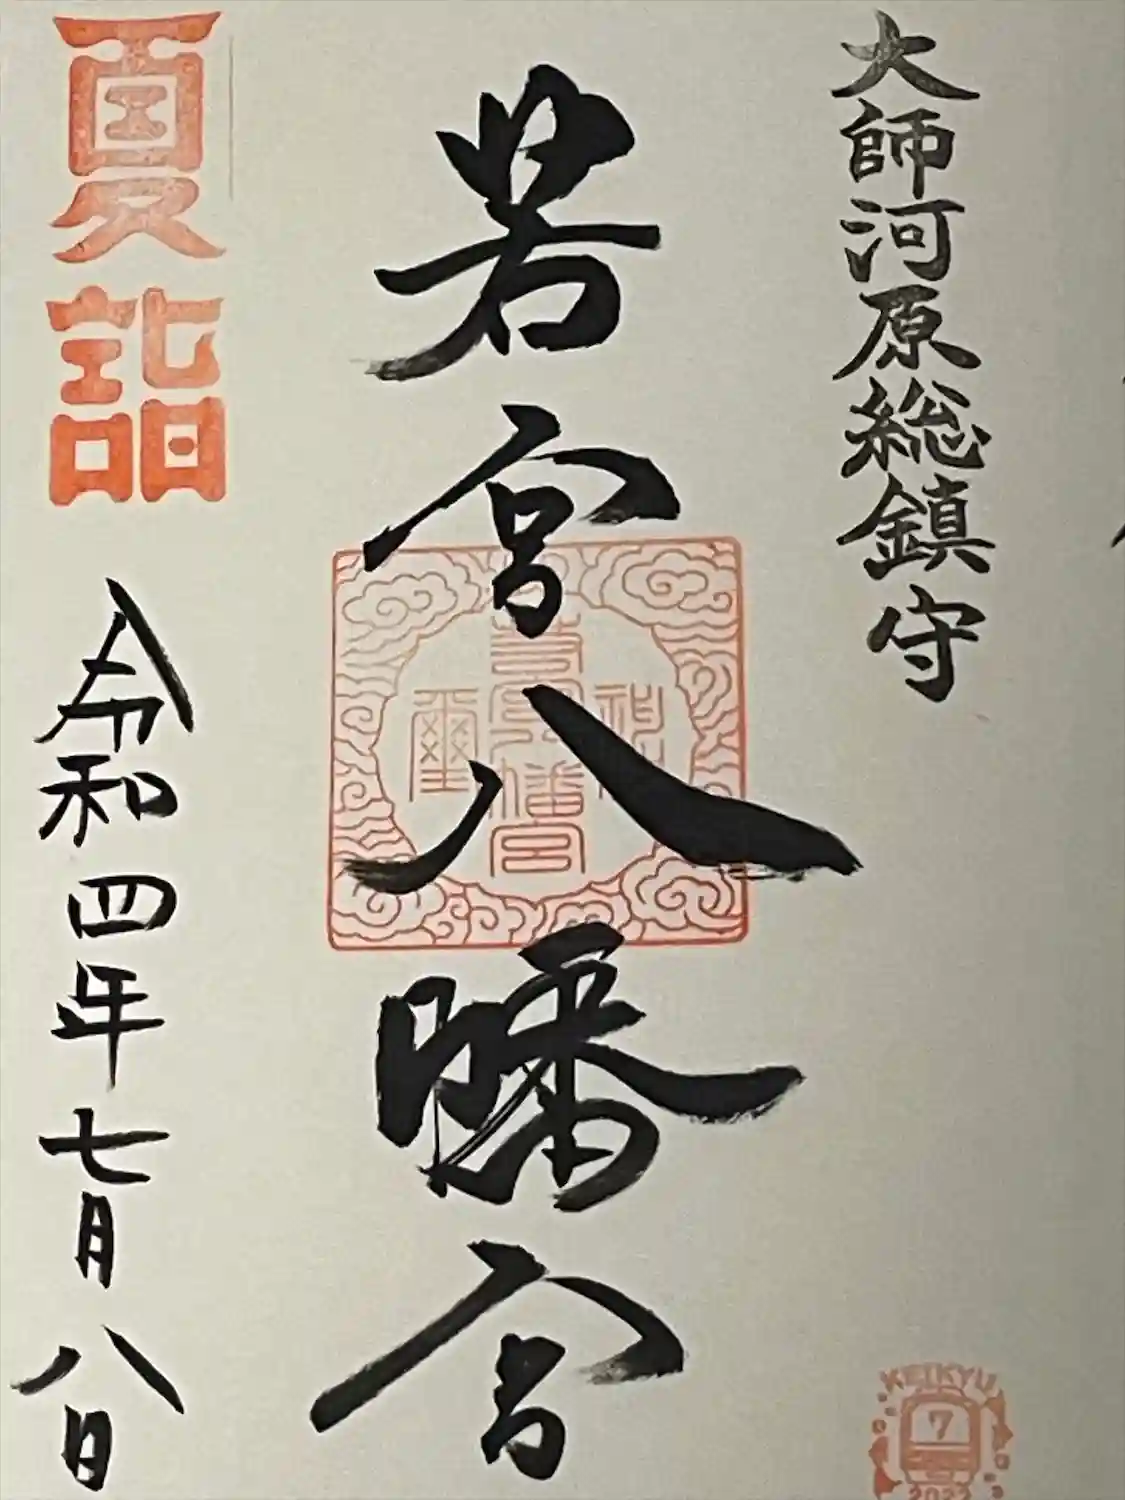 大師河原総鎮守
若宮八幡宮
夏詣
令和四年七月八日
KEIKYU
7
2022